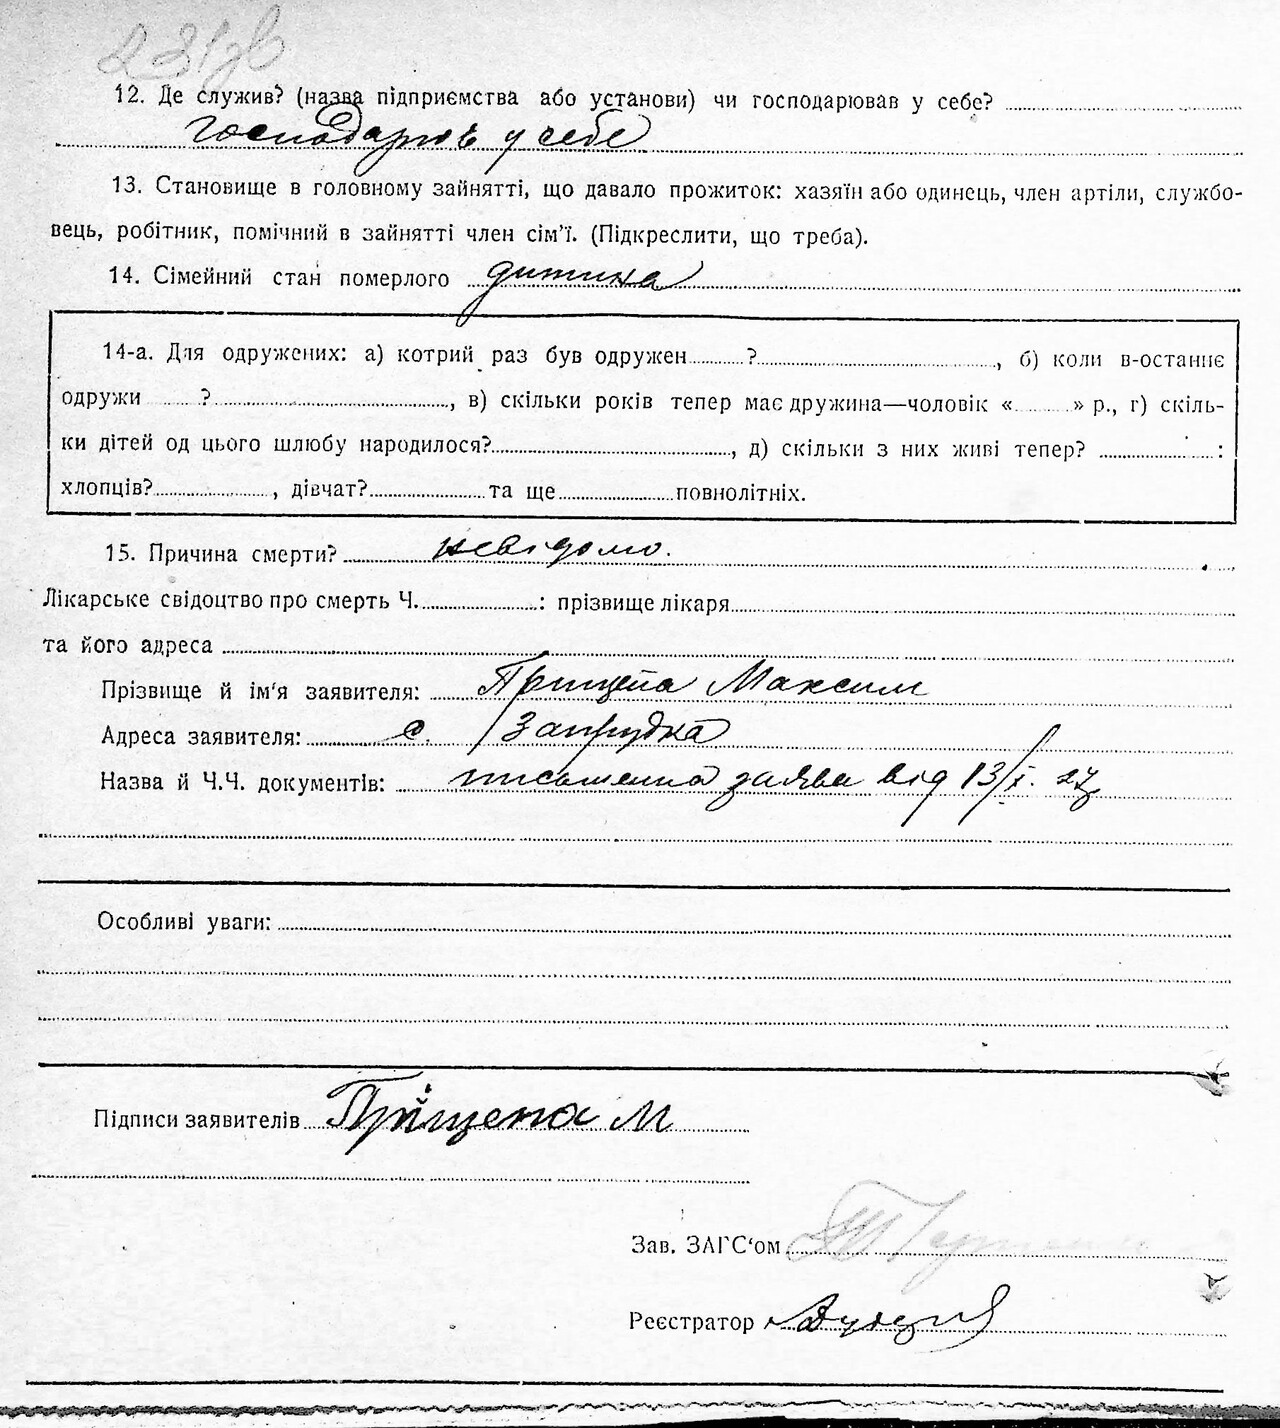 231зв
12. Де служив? (назва підприємства або установи) чи господарював у себе?
господарюв у себе
13. Становище в головному зайнятті, що давало прожиток: хазяїн або одинець, член артіли, службо-
вець, робітник, помічний в зайнятті член сім'ї. (Підкреслити, що треба).
14. Сімейний стан померлого дитина
14-а. Для одружених: а) котрий раз був одружен ? , б) коли в-останнє
одружи ? , в) скільки років тепер має дружина—чоловік « » р., г) скіль-
ки дітей од цього шлюбу народилося? , д) скільки з них живі тепер? :
хлопців? , дівчат? та ще повнолітніх.
15. Причина смерти? невідомо.
Лікарське свідоцтво про смерть Ч. : прізвище лікаря
та його адреса
Прізвище й ім'я заявителя: Прищепа Максим
Адреса заявителя: с. Запрудка
Назва й Ч.Ч. документів: письменна заява від 13/X. 27
Особливі уваги:
Підписи заявителів Пріщепа М
Зав. ЗАГС'ом
Реєстратор